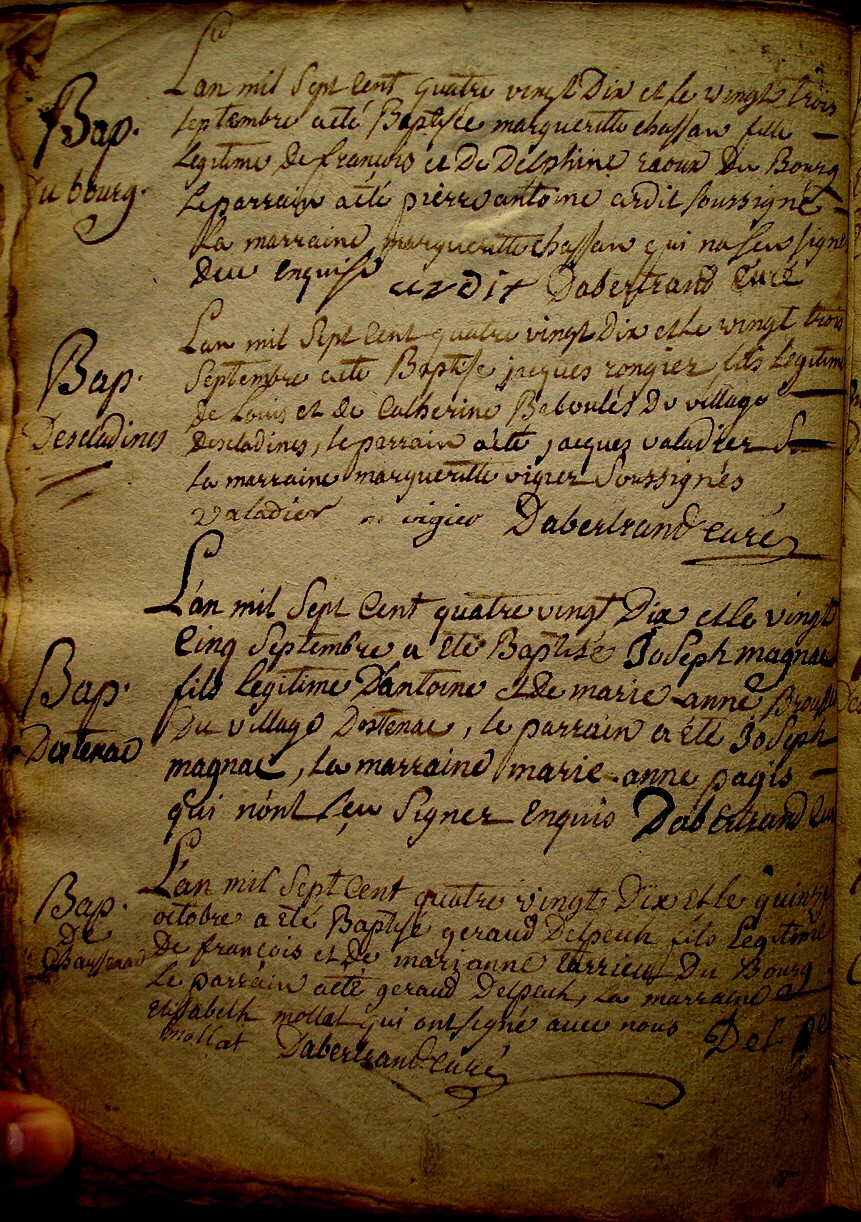 Bap.
du bourg.
L'an mil Sept Cent quatre vingt Dix et le vingt trois
septembre a eté Baptisée margueritte chassan fille
Legitime de françois et De Delphine raoux Du Bourg
Le parrain a été pierre antoine ardit soussigné
La marraine margueritte chassan qui na seu signer
Deu Enquise ardit Dabertrand Curé
Bap.
Descladines
L'an mil Sept Cent quatre vingt Dix et Le vingt trois
Septembre a eté Baptise jacques rongier fils Legitime
de Louis et de Catherine Baboulés Du village
Descladines, le parrain a été jacques valadier
La marraine margueritte vigier Soussignés
valadier m vigier Dabertrand curé
Bap.
Dostenac
L'an mil Sept Cent quatre vingt Dix et le vingt
Cinq Septembre a eté Baptisé Joseph magnac
fils Legitime D'antoine et de marie-anne
Du village Dostenac, le parrain a été Joseph
magnac, La marraine marie-anne pagis
qui nònt sçeu Signer Enquis Dabertrand
Bap.
De
L'an mil Sept Cent quatre vingt Dix et le quinze
octobre a eté Baptisé geraud Delpeuh fils Legitime
De françois et de marianne Carrieu Du Bourg
Le parrain a eté geraud Delpeuh, La marraine
Elisabeth mollat qui ont signé avec nous Del
mollat Dabertrand curé